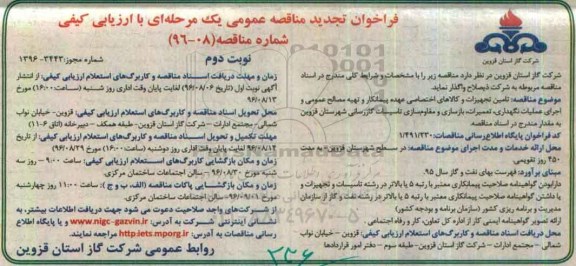 فراخوان تجدید مناقصه عمومی یک مرحله‌ای با ارزیابی کیفی
شماره مناقصه(۰۸-۹۶)
شرکت گاز استان قزوین
نوبت دوم
شماره مجوز:۳۴۴۳-۱۳۹۶
شرکت گاز استان قزوین در نظر دارد مناقصه زیر را با مشخصات و شرایط کلی مندرج در اسناد
مناقصه مربوطه به شرکت ذیصلاح واگذار نماید.
موضوع مناقصه: تامین تجهیزات و کالاهای اختصاصی عهده پیمانکار و تهیه مصالح عمومی و
اجرای عملیات نگهداری، تعمیرات، بازسازی و مقاوم‌سازی تاسیسات گازرسانی شهرستان قزوین
به مقدار مندرج در اسناد مناقصه.
کد فراخوان پایگاه اطلاع‌رسانی مناقصات: ۱/۴۹۱/۳۳۰
محل ارائه خدمات و مدت اجرای موضوع مناقصه: در سطح شهرستان قزوین- به مدت
۴۵۰ روز تقویمی
مبنای برآورد: فهرست بهای نفت و گاز سال ۹۵.
دارابودن گواهینامه صلاحیت پیمانکاری معتبر با رتبه ۵ یا بالاتر در رشته تاسیسات و تجهیزات و
یا داشتن گواهینامه صلاحیت پیمانکاری معتبر با رتبه ۵ یا بالاتر در رشته نفت و گاز از سازمان
مدیریت و برنامه ریزی کشور (سازمان برنامه و بودجه کشور)
ارائه تصویر گواهینامه ایمنی کار از اداره کل تعاون، کار و رفاه اجتماعی.
محل دریافت اسناد مناقصه و کاربرگ‌های استعلام ارزیابی کیفی: قزوین - خیابان نواب
شمالی -مجتمع ادارات - شرکت گاز استان قزوین-طبقه سوم - دفتر امور قراردادها
زمان و مهلت دریافت اسناد مناقصه و کاربرگ‌های استعلام ارزیابی کیفی: از انتشار
آگهی نوبت اول (تاریخ ۹۶/۰۸/۰۶) لغایت پایان وقت اداری روز شنبه (ساعت۱۶:۰۰) مورخ
۹۶/۰۸/۱۳
محل تحویل اسناد مناقصه و کاربرگ‌های استعلام ارزیابی کیفی: قزوین- خیابان نواب
شمالی-مجتمع ادارات - شرکت گاز استان قزوین-طبقه همکف - دبیرخانه (اتاق ۶-۱۱)
مهلت تکمیل و تحویل اسناد مناقصه و کاربرگ‌های استعلام ارزیابی کیفی: از تاریخ
۹۶/۰۸/۱۴ لغایت پایان وقت اداری روز دوشنبه (ساعت۱۶:۰۰) مورخ ۹۶/۰۸/۲۹
زمان و مکان بازگشایی کاربرگ‌های استعلام ارزیابی کیفی: ساعت ۹:۰۰ - روز سه
شنبه مورخ ۹۶/۰۸/۳۰ -سالن اجتماعات ساختمان مرکزی.
زمان و مکان بازگشایی پاکات مناقصه (الف، ب و ج ): ساعت ۱۱:۰۰ روز چهارشنبه
مورخ ۹۶/۰۹/۰۱ -سالن اجتماعات ساختمان مرکزی.
از شرکت‌های واجد صلاحیت دعوت می شود جهت دریافت اطلاعات بیشتر، به
نشانی اینترنتی شرکت به آدرس: www.nigc-gazvin.ir و یا پایگاه اطلاع
رسانی مناقصات به آدرس: http:iets.mporg.ir مراجعه نمایند.
روابط عمومی شرکت گاز استان قزوین